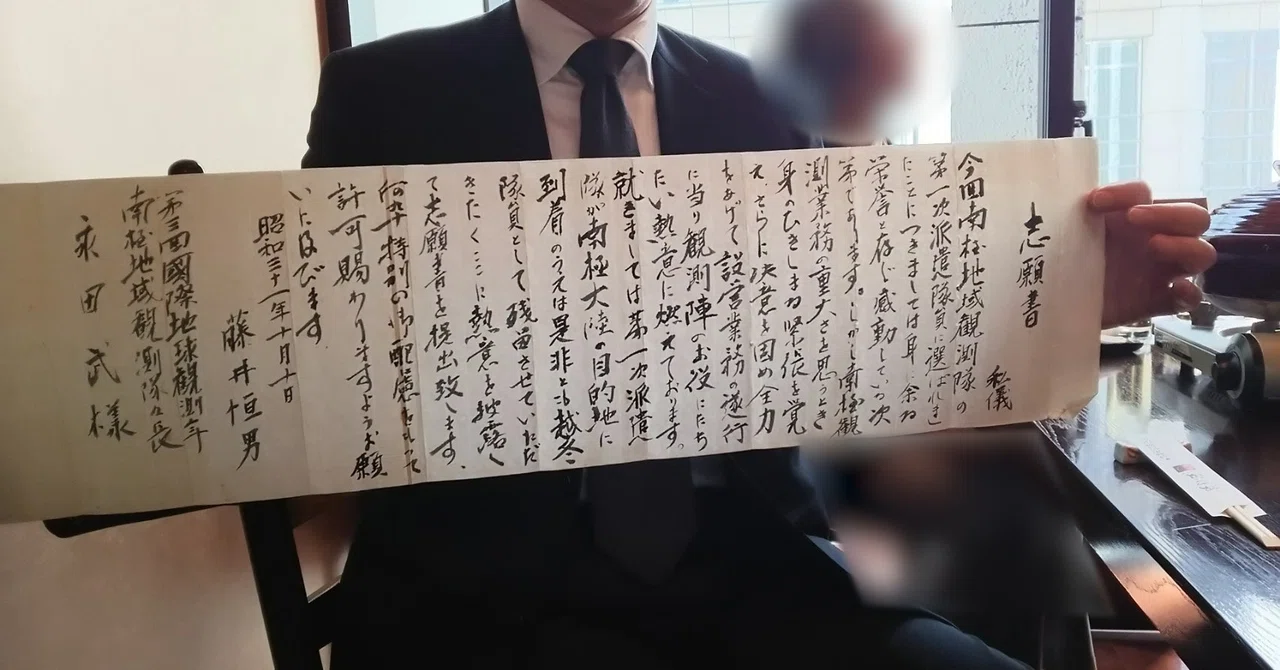 志願書
私儀
今回南極地域観測隊の
第一次派遣隊員に選ばれま
したことにつきましては身に余る
栄誉と存じ感動している次
第であります。しかし南極観
測業務の重大さを思うとき
身のひきしまる緊張を覚
え、さらに決意を固め全力
をあげて設営業務の遂行
に当り観測陣のお役にたち
たい熱意に燃えております。
就きましては第一次派遣
隊が南極大陸の目的地に
到着のうえは是非とも越冬
隊員として残留させていただ
きたくここに熱意を披露し
て志願書を提出致します。
何卒特別の御配慮をもって
許可賜わりますようお願
いに及びます
昭和三十一年十月十日
藤井恒男
第三回國際地球観測年
南極地域観測隊々長
永田武様